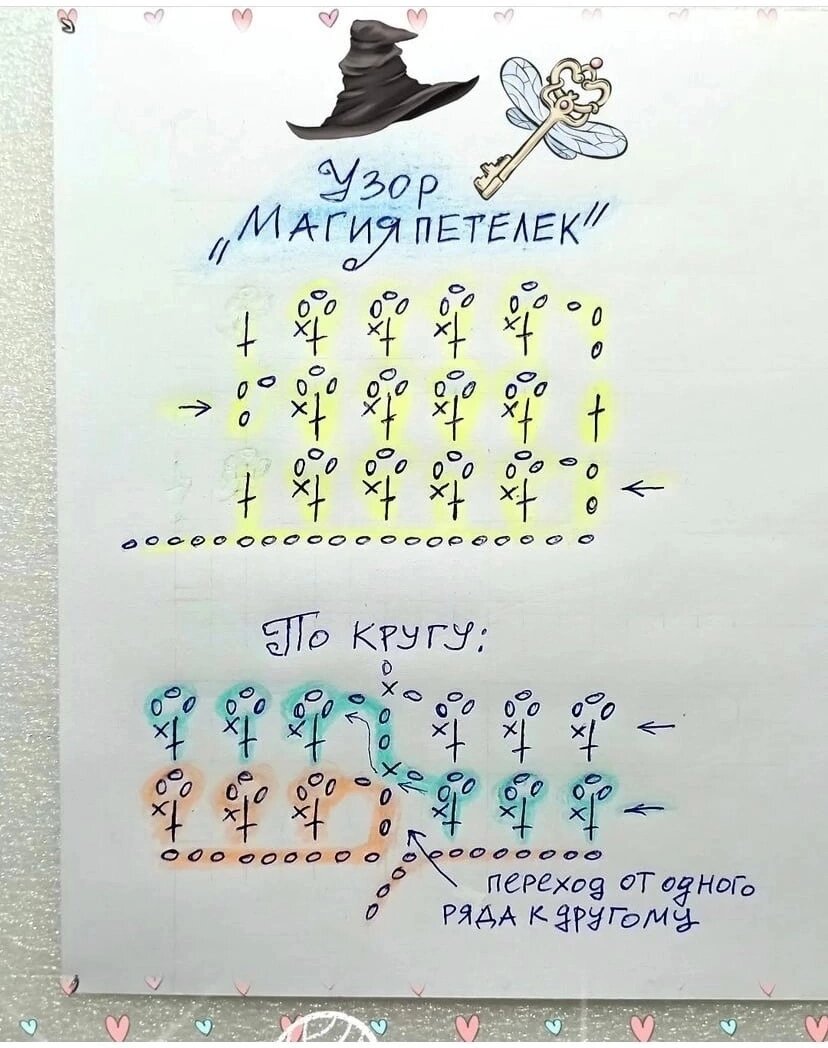 Узор
„Магия петелек"
По кругу:
переход от одного
ряда к другому